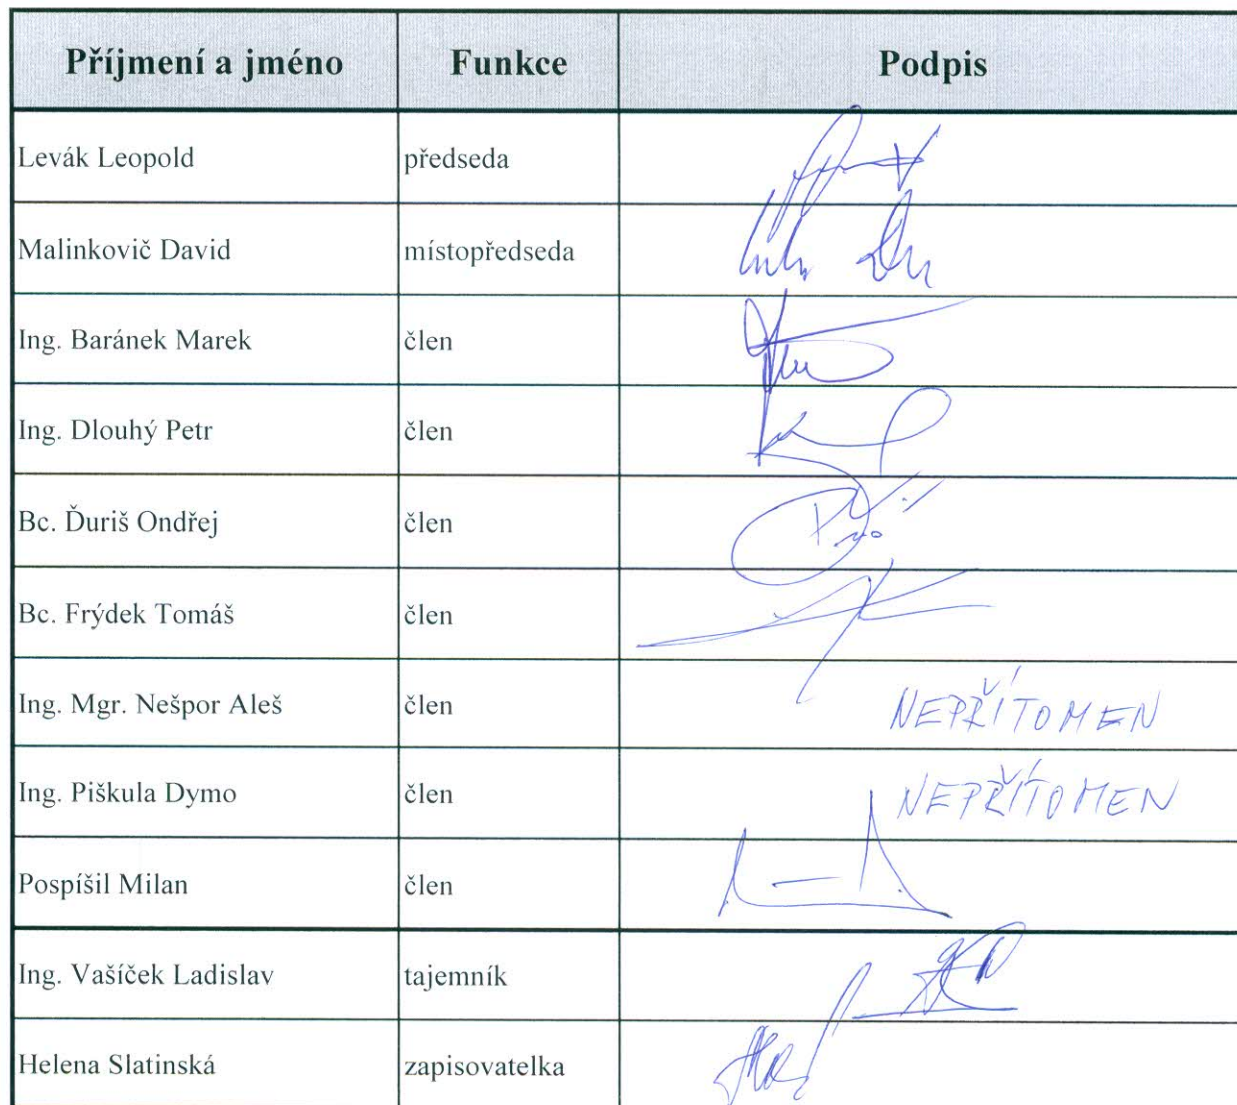 Příjmení a jméno Funkce Podpis
Levák Leopold předseda
Malinkovič David místopředseda
Ing. Baránek Marek člen
Ing. Dlouhý Petr člen
Bc. Ďuriš Ondřej člen
Bc. Frýdek Tomáš člen
Ing. Mgr. Nešpor Aleš člen NEPŘÍTOMEN
Ing. Piškula Dymo člen NEPŘÍTOMEN
Pospíšil Milan člen
Ing. Vašíček Ladislav tajemník
Helena Slatinská zapisovatelka